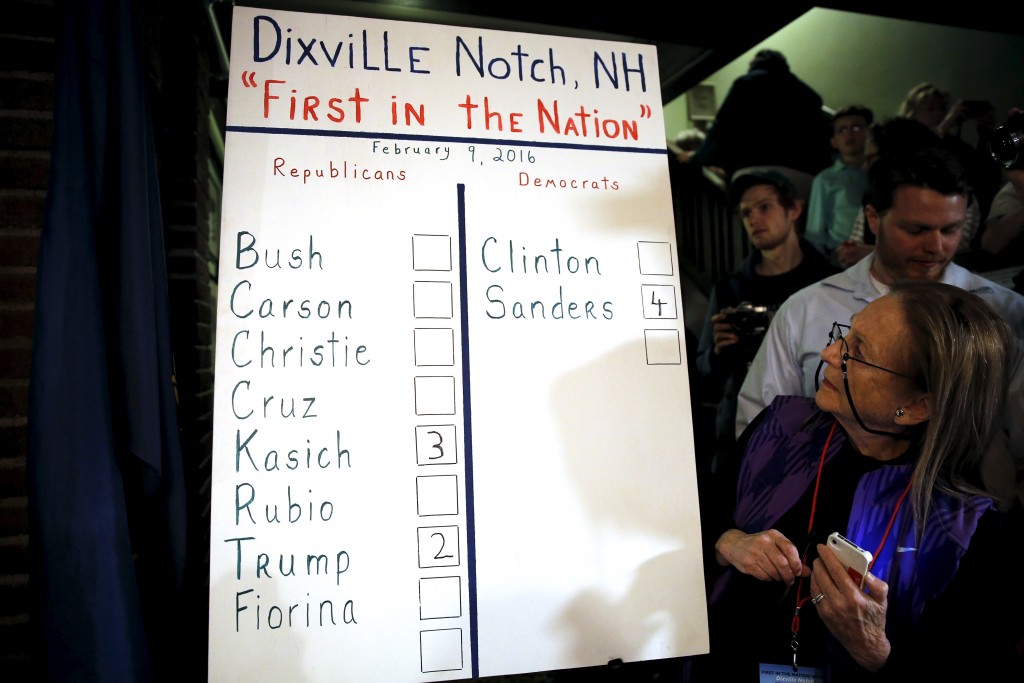 DixviLLE Notch, NH
"First in the Nation"
February 9, 2016
Republicans
Democrats
Bush
Carson
Christie
Cruz
Kasich 3
Rubio
Trump 2
Fiorina
Clinton
Sanders 4
FIRST IN THE NATION
Dixville Notch